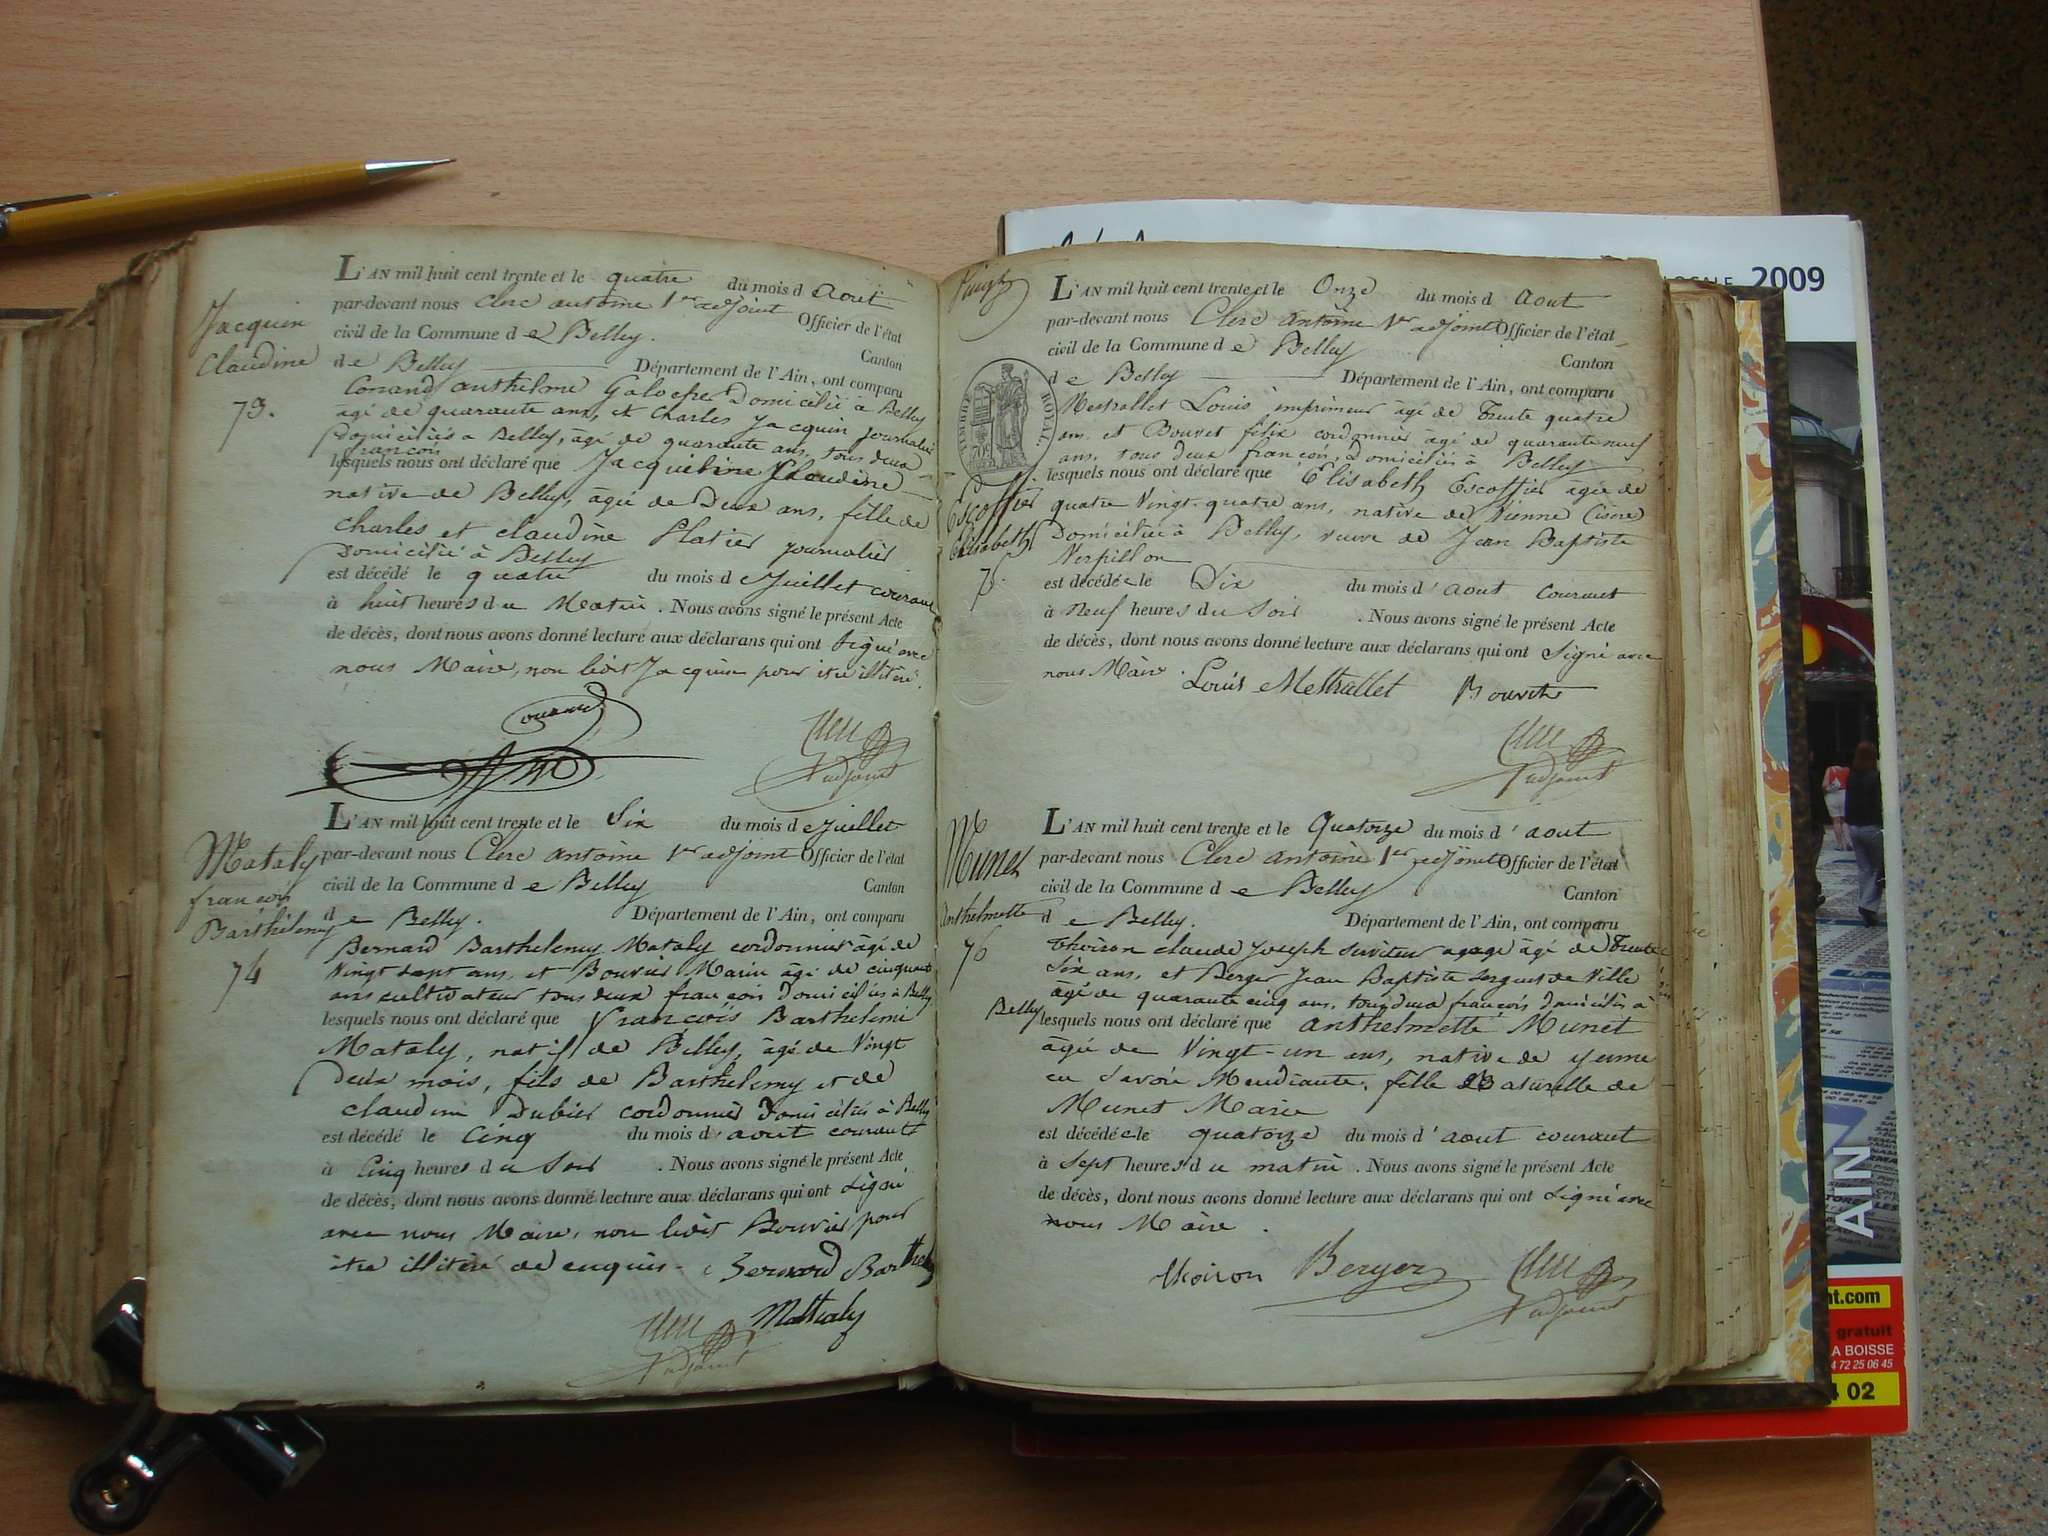 Jacquin
Claudine
73.
L'AN mil huit cent trente et le quatre du mois d Aout
par-devant nous Clerc antoine 1er adjoint Officier de l'état
civil de la Commune d e Belley. Canton
d e Belley Département de l'Ain, ont comparu
Conand anthelme Galocher Domicilié à Belley
agé de quarante ans, et Charles Jacquin journalier
Domiciliés a Belley, âgé de quarante ans, tous deux
francois
lesquels nous ont déclaré que Jacqueline Claudine
native de Belley, âgée de Deux ans, fille de
Charles et claudine Platier journalier
Domicilié à Belley
est décédé le quatre du mois d e Juillet courant
à huit heures d u Matin . Nous avons signé le présent Acte
de décès, dont nous avons donné lecture aux déclarans qui ont signé avec
nous Maire, non ledit Jacquin pour être illitéré.
Clerc
adjoint
Mataly
francois
Barthélemy
74
L'AN mil huit cent trente et le Six du mois d e Juillet
par-devant nous Clerc antoine 1er adjoint Officier de l'état
civil de la Commune d e Belley Canton
d e Belley. Département de l'Ain, ont comparu
Bernard Barthelemy Mataly cordonnier âgé de
Vingt sept ans, et Bouvier Marin âgé de cinquante
ans cultivateur tous deux francois Domiciliés à Belley
lesquels nous ont déclaré que François Barthelemi
Mataly, natif de Belley, âgé de Vingt
Deux mois, fils de Barthelemy et de
claudine Dubier cordonnier Domiciliés à Belley
est décédé le Cinq du mois d' aout courant
à Cinq heures d u Soir . Nous avons signé le présent Acte
de décès, dont nous avons donné lecture aux déclarans qui ont Signé
avec nous Maire, non ledit Bouvier pour
être illitéré de enquis. Bernard Barthelemy
Mathaly
Clerc
adjoint
Vingt
TIMBRE ROYAL.
70c
Escoffier
Elisabeth
75.
L'AN mil huit cent trente et le Onze du mois d Aout
par-devant nous Clerc antoine 1er adjoint Officier de l'état
civil de la Commune d e Belley Canton
d e Belley Département de l'Ain, ont comparu
Mestrallet Louis imprimeur âgé de Trente quatre
ans et Bouvet félix cordonnier âgé de quarante neuf
ans, tous deux francois, Domiciliés à Belley
lesquels nous ont déclaré que Elisabeth Escoffier âgée de
quatre Vingt-quatre ans, native de Vienne (isère)
Domiciliée à Belley, veuve de Jean Baptiste
Verpillon
est décédé e le Dix du mois d' aout courant
à Neuf heures d u Soir . Nous avons signé le présent Acte
de décès, dont nous avons donné lecture aux déclarans qui ont Signé avec
nous Maire. Louis Mestrallet Bouvet
Clerc
adjoint
Munet
Anthelmette
76
L'AN mil huit cent trente et le Quatorze du mois d' aout
par-devant nous Clerc antoine 1er adjoint Officier de l'état
civil de la Commune d e Belley Canton
d e Belley. Département de l'Ain, ont comparu
Thoiron claude Joseph serviteur âgé de Trente
Six ans, et Berger Jean Baptiste Sergent de Ville
âgé de quarante cinq ans, tous deux francois domiciliés à
Belley lesquels nous ont déclaré que anthelmette Munet
âgée de Vingt-un ans, native de yenne
en Savoie Mendiante, fille Naturelle de
Munet Marie
est décédé e le quatorze du mois d' aout courant
à Sept heures d u matin . Nous avons signé le présent Acte
de décès, dont nous avons donné lecture aux déclarans qui ont Signé avec
nous Maire.
thoiron Berger Clerc
adjoint
LOCALE 2009
AIN
nt.com
gratuit
A BOISSE
4 72 25 06 45
4 02